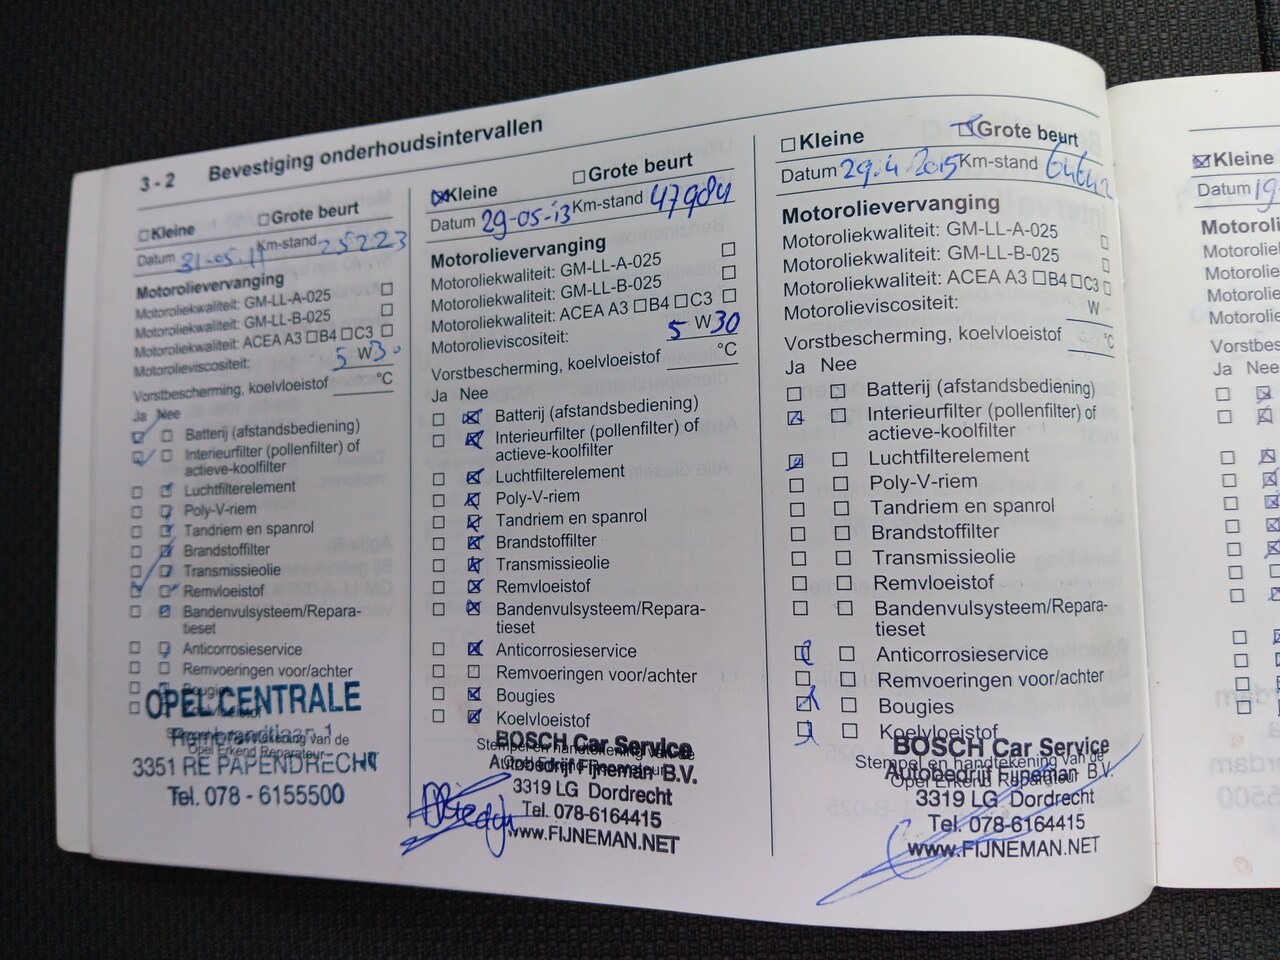 3 - 2 Bevestiging onderhoudsintervallen
Kleine Grote beurt
Datum 31-05-11 Km-stand 25223
Motorolievervanging
Motoroliekwaliteit: GM-LL-A-025
Motoroliekwaliteit: GM-LL-B-025
Motoroliekwaliteit: ACEA A3 B4 C3
Motorolieviscositeit: 5 W 30
Vorstbescherming, koelvloeistof °C
Ja Nee
Batterij (afstandsbediening)
Interieurfilter (pollenfilter) of
actieve-koolfilter
Luchtfilterelement
Poly-V-riem
Tandriem en spanrol
Brandstoffilter
Transmissieolie
Remvloeistof
Bandenvulsysteem/Repara-
tieset
Anticorrosieservice
Remvoeringen voor/achter
Bougies
Koelvloeistof
Stempel en handtekening van de
Opel Erkend Reparateur
OPEL CENTRALE
Rembrandtlaan 1
3351 RE PAPENDRECHT
Tel. 078 - 6155500
Kleine Grote beurt
Datum 29-05-13 Km-stand 47984
Motorolievervanging
Motoroliekwaliteit: GM-LL-A-025
Motoroliekwaliteit: GM-LL-B-025
Motoroliekwaliteit: ACEA A3 B4 C3
Motorolieviscositeit: 5 W 30
Vorstbescherming, koelvloeistof °C
Ja Nee
Batterij (afstandsbediening)
Interieurfilter (pollenfilter) of
actieve-koolfilter
Luchtfilterelement
Poly-V-riem
Tandriem en spanrol
Brandstoffilter
Transmissieolie
Remvloeistof
Bandenvulsysteem/Repara-
tieset
Anticorrosieservice
Remvoeringen voor/achter
Bougies
Koelvloeistof
Stempel en handtekening van de
Opel Erkend Reparateur
BOSCH Car Service
Autobedrijf Fijneman B.V.
3319 LG Dordrecht
Tel. 078-6164415
www.FIJNEMAN.NET
Kleine Grote beurt
Datum 29.4 2015 Km-stand
Motorolievervanging
Motoroliekwaliteit: GM-LL-A-025
Motoroliekwaliteit: GM-LL-B-025
Motoroliekwaliteit: ACEA A3 B4 C3
Motorolieviscositeit: W
Vorstbescherming, koelvloeistof °C
Ja Nee
Batterij (afstandsbediening)
Interieurfilter (pollenfilter) of
actieve-koolfilter
Luchtfilterelement
Poly-V-riem
Tandriem en spanrol
Brandstoffilter
Transmissieolie
Remvloeistof
Bandenvulsysteem/Repara-
tieset
Anticorrosieservice
Remvoeringen voor/achter
Bougies
Koelvloeistof
Stempel en handtekening van de
Opel Erkend Reparateur
BOSCH Car Service
Autobedrijf Fijneman B.V.
3319 LG Dordrecht
Tel. 078-6164415
www.FIJNEMAN.NET
Kleine
Datum 19-
Motoroli
Motoroliek
Motoroliek
Motoroliek
Motorolie
Vorstbes
Ja Nee